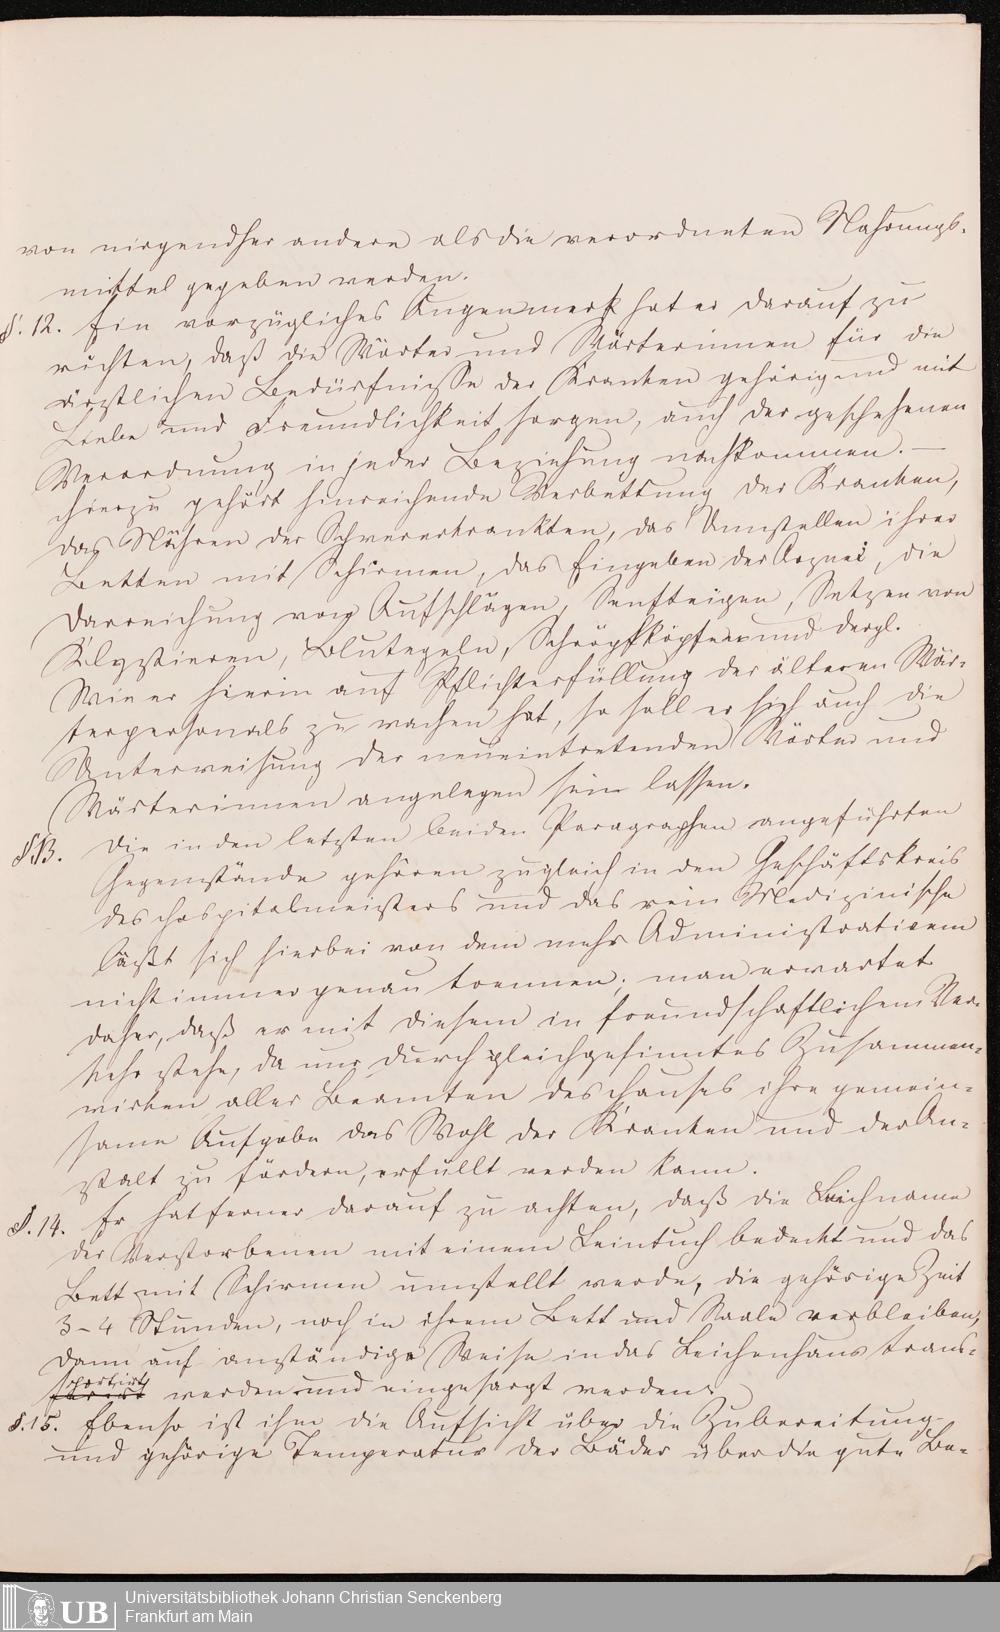 von nirgendher andere als die verordneten Nahrungs-
mittel gegeben werden.
§. 12. Ein vorzügliches Augenmerk hat er darauf zu
richten, daß die Wärter und Wärterinnen für die
ärztlichen Bedürfnisse der Kranken gehörig und mit
Liebe und Freundlichkeit sorgen, auch der geschehenen
Verordnung in jeder Beziehung nachkommen. —
Hierzu gehört hinreichende Verbettung der Kranken,
das Nähren der Schwererkrankten, das Umstellen ihrer
Betten mit Schirmen, das Eingeben der Arznei, die
Darreichung von Aufschlägen, Senfteigen, Setzen von
Klystieren, Blutegeln, Schröpfköpfen und dergl.
Wie er hierin auf Pflichterfüllung der älteren Wär-
terpersonals zu wachen hat, so soll er sich auch die
Unterweisung der neueintretenden Wärter und
Wärterinnen angelegen sein lassen.
§.13. Die in den letzten beiden Paragraphen angeführten
Gegenstände gehören zugleich in den Geschäftskreis
des Hospitalmeisters und das rein Medizinische
läßt sich hierbei von dem mehr Administrativem
nicht immer genau trennen; man erwartet
daher, daß er mit diesem in freundschaftlichem Ver-
kehr stehe, da nur durch gleichgesinntes Zusammen-
wirken aller Beamten des Hauses ihre gemein-
same Aufgabe das Wohl der Kranken und der An-
stalt zu fördern, erfüllt werden kann.
§. 14. Er hat ferner darauf zu achten, daß die Leichname
der Verstorbenen mit einem Leintuch bedeckt und das
Bett mit Schirmen umstellt werde, die gehörige Zeit
3-4 Stunden, noch in ihrem Bett und Saale verbleiben,
dann auf anständige Weise in das Leichenhaus trans-
portirt werden und eingesargt werden.
§. 15. Ebenso ist ihm die Aufsicht über die Zubereitung
und gehörige Temperatur der Bäder über die gute Be-
UB Universitätsbibliothek Johann Christian Senckenberg
Frankfurt am Main